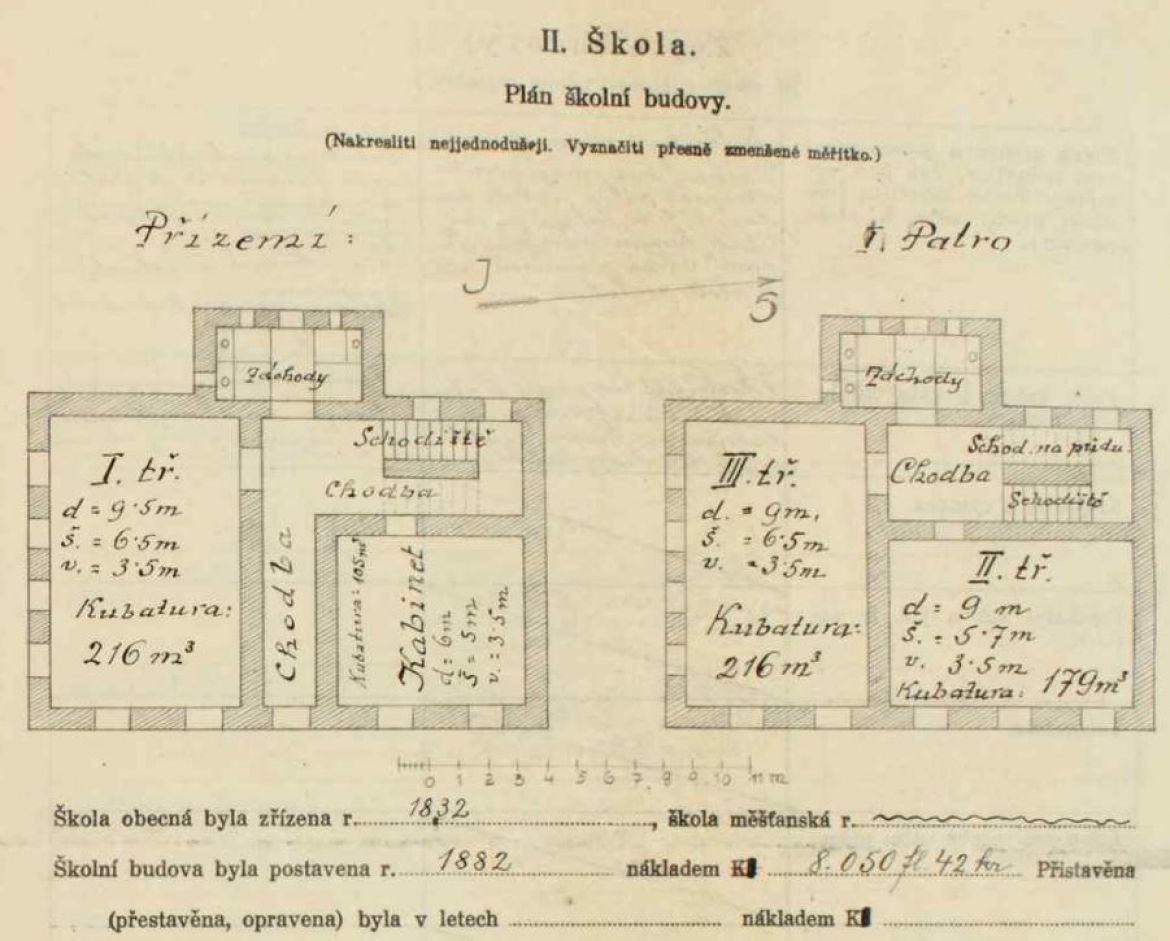 II. Škola.
Plán školní budovy.
(Nakresliti nejjednodušeji. Vyznačiti přesně zmenšené měřítko.)
Přízemí:
I. Patro
J
S
Záchody
Schodiště
Chodba
I. tř.
d = 9·5m
š. = 6·5m
v. = 3·5m
Kubatura:
216 m³
Chodba
Kubatura: 105 m³
Kabinet
d = 6m
š = 5m
v. = 3·5m
Záchody
Schod. na půdu.
Chodba
Schodiště
III. tř.
d. = 9m,
š. = 6·5m
v. = 3·5m
Kubatura:
216 m³
II. tř.
d = 9 m
š. = 5·7m
v. 3·5m
Kubatura: 179m³
0 1 2 3 4 5 6 7 8 9 10 11 m
Škola obecná byla zřízena r. 1832, škola měšťanská r.
Školní budova byla postavena r. 1882 nákladem K 8.050 fl 42 kr Přistavěna
(přestavěna, opravena) byla v letech nákladem K